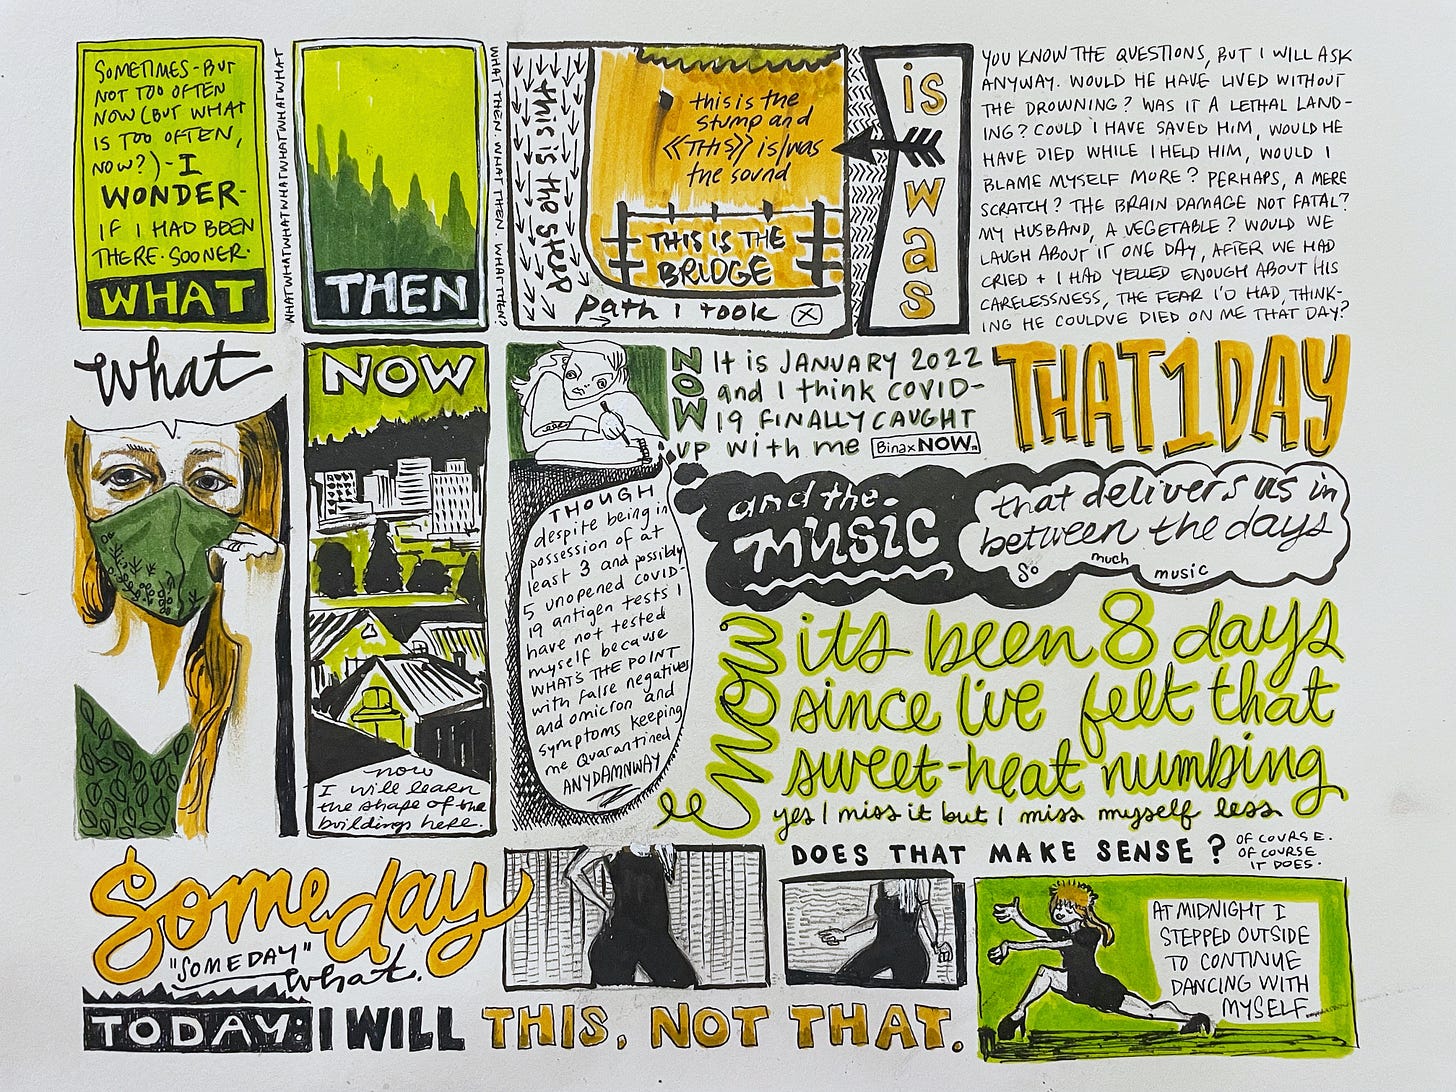 SOMETIMES-BUT
NOT TOO OFTEN
NOW (BUT WHAT
IS TOO OFTEN,
NOW?)-I
WONDER-
IF I HAD BEEN
THERE. SOONER.
WHAT
WHATWHATWHATWHATWHATWHATWHATWHAT
THEN
WHAT THEN. WHAT THEN. WHAT THEN?
this is the STEP
path I took
this is the
stump and
<<THIS>> is/was
the sound
THIS IS THE
BRIDGE
is
was
YOU KNOW THE QUESTIONS, BUT I WILL ASK
ANYWAY. WOULD HE HAVE LIVED WITHOUT
THE DROWNING? WAS IT A LETHAL LAND-
ING? COULD I HAVE SAVED HIM, WOULD HE
HAVE DIED WHILE I HELD HIM, WOULD I
BLAME MYSELF MORE? PERHAPS, A MERE
SCRATCH? THE BRAIN DAMAGE NOT FATAL?
MY HUSBAND, A VEGETABLE? WOULD WE
LAUGH ABOUT IT ONE DAY, AFTER WE HAD
CRIED + I HAD YELLED ENOUGH ABOUT HIS
CARELESSNESS, THE FEAR I'D HAD, THINK-
ING HE COULDVE DIED ON ME THAT DAY?
what
NOW
now
I will learn
the shape of the
buildings here.
NOW
It is JANUARY 2022
and I think COVID-
19 FINALLY CAUGHT
up with me BinaxNOW
THAT 1 DAY
THOUGH
despite being in
possession of at
least 3 and possibly
5 unopened COVID-
19 antigen tests I
have not tested
myself because
WHAT'S THE POINT
with false negatives
and omicron and
symptoms keeping
me quarantined
ANYDAMNWAY
and the
MUSIC
that delivers us in
between the days
so much music
NOW
its been 8 days
since I've felt that
sweet-heat numbing
yes I miss it but I miss myself less
DOES THAT MAKE SENSE?
OF COURSE.
OF COURSE
IT DOES.
Someday
"SOMEDAY"
what.
TODAY: I WILL THIS, NOT THAT.
AT MIDNIGHT I
STEPPED OUTSIDE
TO CONTINUE
DANCING WITH
MYSELF